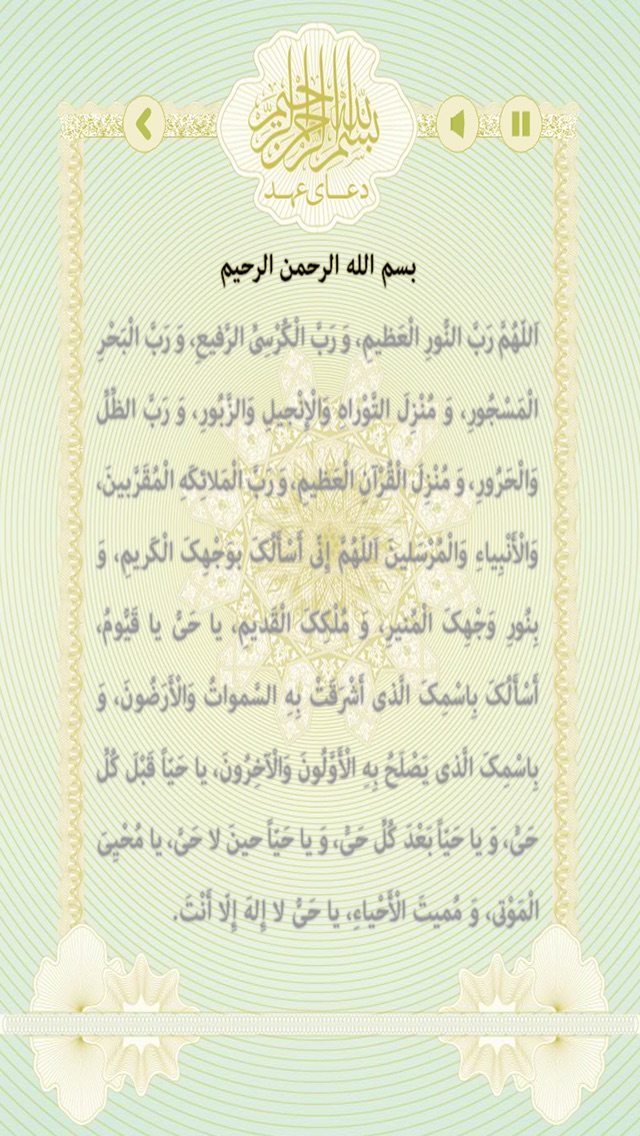 بسم الله الرحمن الرحیم
دعای عهد
بسم الله الرحمن الرحیم
اَللّهُمَّ رَبَّ النُّورِ الْعَظیمِ، وَ رَبَّ الْكُرْسِىِّ الرَّفیعِ، وَ رَبَّ الْبَحْرِ
الْمَسْجُورِ، وَ مُنْزِلَ التَّوْراهِ وَالْإِنْجیلِ وَالزَّبُورِ، وَ رَبَّ الظِّلِّ
وَالْحَرُورِ، وَ مُنْزِلَ الْقُرْآنِ الْعَظیمِ، وَ رَبَّ الْمَلائِکَهِ الْمُقَرَّبینَ،
وَالْأَنْبِیاءِ وَالْمُرْسَلینَ اَللّهُمَّ إِنّى أَسْأَلُکَ بِوَجْهِکَ الْکَریمِ، وَ
بِنُورِ وَجْهِکَ الْمُنیرِ، وَ مُلْکِکَ الْقَدیمِ، یا حَىُّ یا قَیُّومُ،
أَسْأَلُکَ بِاسْمِکَ الَّذى أَشْرَقَتْ بِهِ السَّمواتُ وَالْأَرَضُونَ، وَ
بِاسْمِکَ الَّذى یَصْلَحُ بِهِ الْأَوَّلُونَ وَالْآخِرُونَ، یا حَیّاً قَبْلَ کُلِّ
حَىٍّ، وَ یا حَیّاً بَعْدَ کُلِّ حَىٍّ، وَ یا حَیّاً حینَ لا حَىَّ، یا مُحْیِىَ
الْمَوْتى، وَ مُمیتَ الْأَحْیاءِ، یا حَىُّ لا إِلهَ إِلّا أَنْتَ.